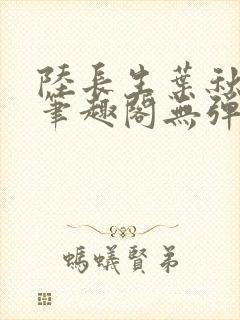 陸長生葉秋
筆趣閣無彈
螞蟻賢弟